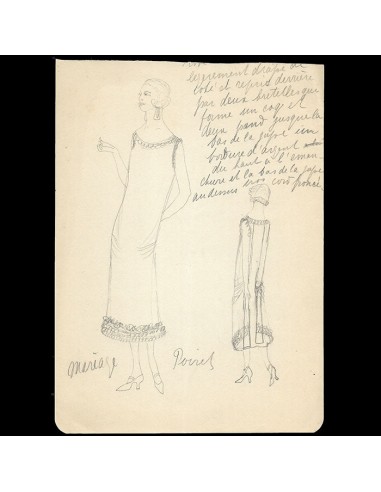 legerement drapé de
coté et repris derrière
par deux bretelles qui
forme un cage et
deux pand jusque la
bas de la jupe un
bordure d'argent
du haut à l'eman
chure et la bas de la jupe
au dessus gros froncé
mariage
Poiret